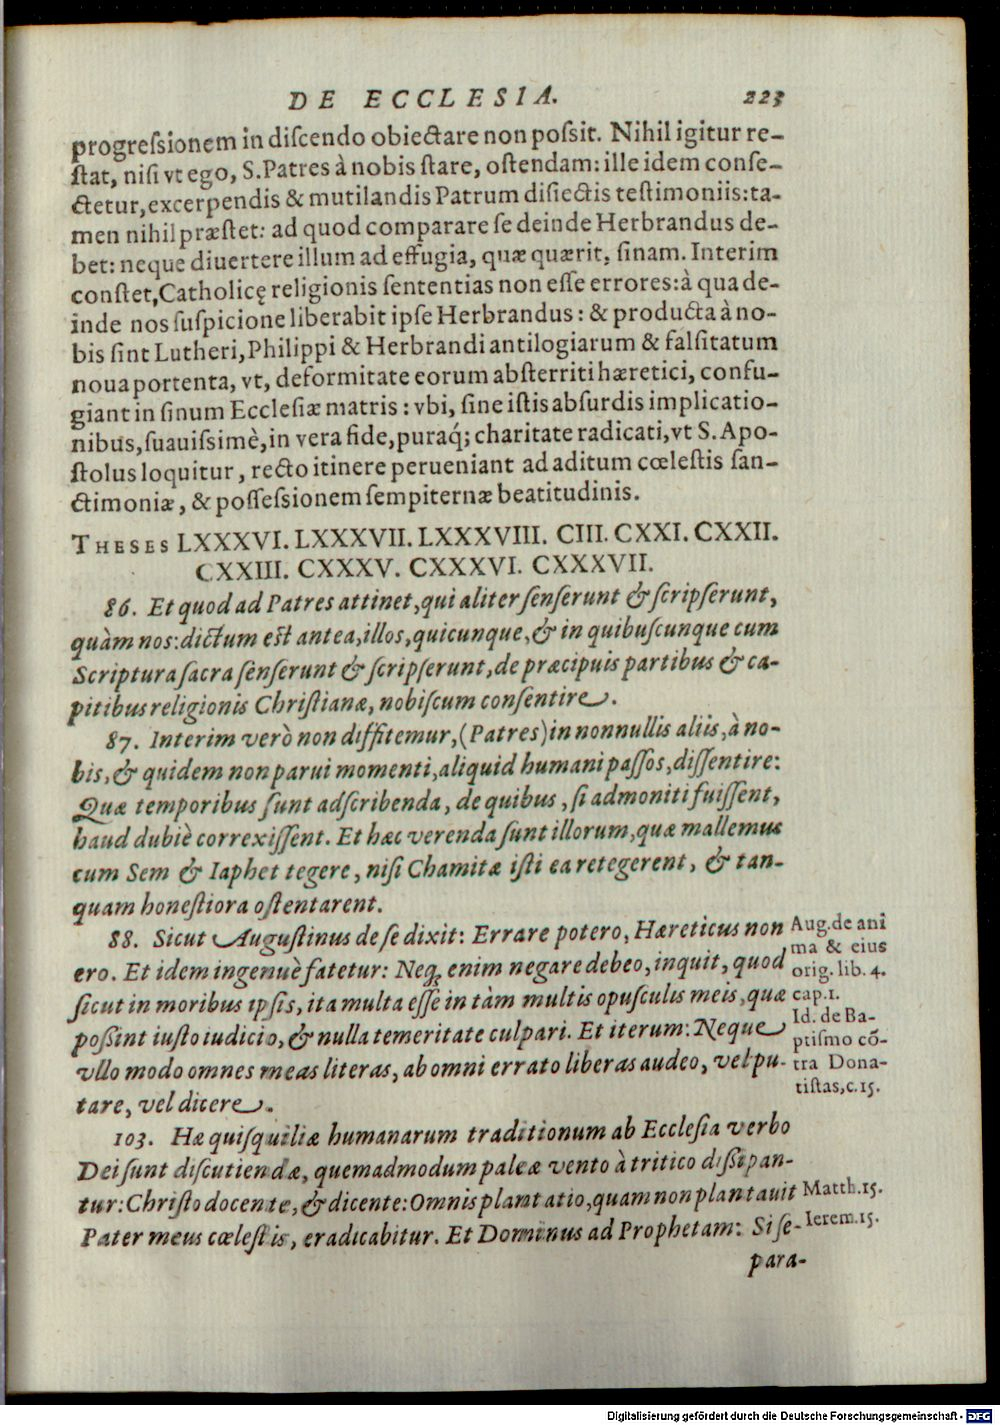 DE ECCLESIA. 223
progreſsionem in diſcendo obiectare non poſsit. Nihil igitur re-
ſtat, niſi vt ego, S. Patres à nobis ſtare, oſtendam: ille idem conſe-
ctetur, excerpendis & mutilandis Patrum diſiectis teſtimoniis: ta-
men nihil præſtet: ad quod comparare ſe deinde Herbrandus de-
bet: neque diuertere illum ad effugia, quæ quærit, ſinam. Interim
conſtet, Catholicę religionis ſententias non eſſe errores: à qua de-
inde nos ſuſpicione liberabit ipſe Herbrandus: & producta à no-
bis ſint Lutheri, Philippi & Herbrandi antilogiarum & falſitatum
noua portenta, vt, deformitate eorum abſterriti hæretici, confu-
giant in ſinum Eccleſiæ matris: vbi, ſine iſtis abſurdis implicatio-
nibus, ſuauiſsimè, in vera fide, puraq́; charitate radicati, vt S. Apo-
ſtolus loquitur, recto itinere perueniant ad aditum cœleſtis ſan-
ctimoniæ, & poſſeſsionem ſempiternæ beatitudinis.
THESES LXXXVI. LXXXVII. LXXXVIII. CIII. CXXI. CXXII.
CXXIII. CXXXV. CXXXVI. CXXXVII.
86. Et quod ad Patres attinet, qui aliter ſenſerunt & ſcripſerunt,
quàm nos: dictum eſt antea, illos, quicunque, & in quibuſcunque cum
Scriptura ſacra ſenſerunt & ſcripſerunt, de præcipuis partibus & ca-
pitibus religionis Chriſtianæ, nobiſcum conſentire.
87. Interim verò non diffitemur, (Patres) in nonnullis aliis, à no-
bis, & quidem non parui momenti, aliquid humani paſſos, diſſentire:
Quæ temporibus ſunt adſcribenda, de quibus, ſi admoniti fuiſſent,
haud dubiè correxiſſent. Et hæc verenda ſunt illorum, quæ mallemus
cum Sem & Iaphet tegere, niſi Chamitæ iſti ea retegerent, & tan-
quam honeſtiora oſtentarent.
88. Sicut Auguſtinus de ſe dixit: Errare potero, Hæreticus non
ero. Et idem ingenuè fatetur: Neq; enim negare debeo, inquit, quod
ſicut in moribus ipſis, ita multa eſſe in tàm multis opuſculis meis, quæ
poßint iuſto iudicio, & nulla temeritate culpari. Et iterum: Neque
vllo modo omnes meas literas, ab omni errato liberas audeo, vel pu-
tare, vel dicere.
Aug. de ani
ma & eius
orig. lib. 4.
cap. 1.
Id. de Ba-
ptiſmo cõ-
tra Dona-
tiſtas, c. 15.
103. Hæ quiſquiliæ humanarum traditionum ab Eccleſia verbo
Dei ſunt diſcutiendæ, quemadmodum paleæ vento à tritico dißipan-
tur: Chriſto docente, & dicente: Omnis plantatio, quam non plantauit
Pater meus cœleſtis, eradicabitur. Et Dominus ad Prophetam: Si ſe-
Matth. 15.
Ierem. 15.
para-
Digitalisierung gefördert durch die Deutsche Forschungsgemeinschaft - DFG